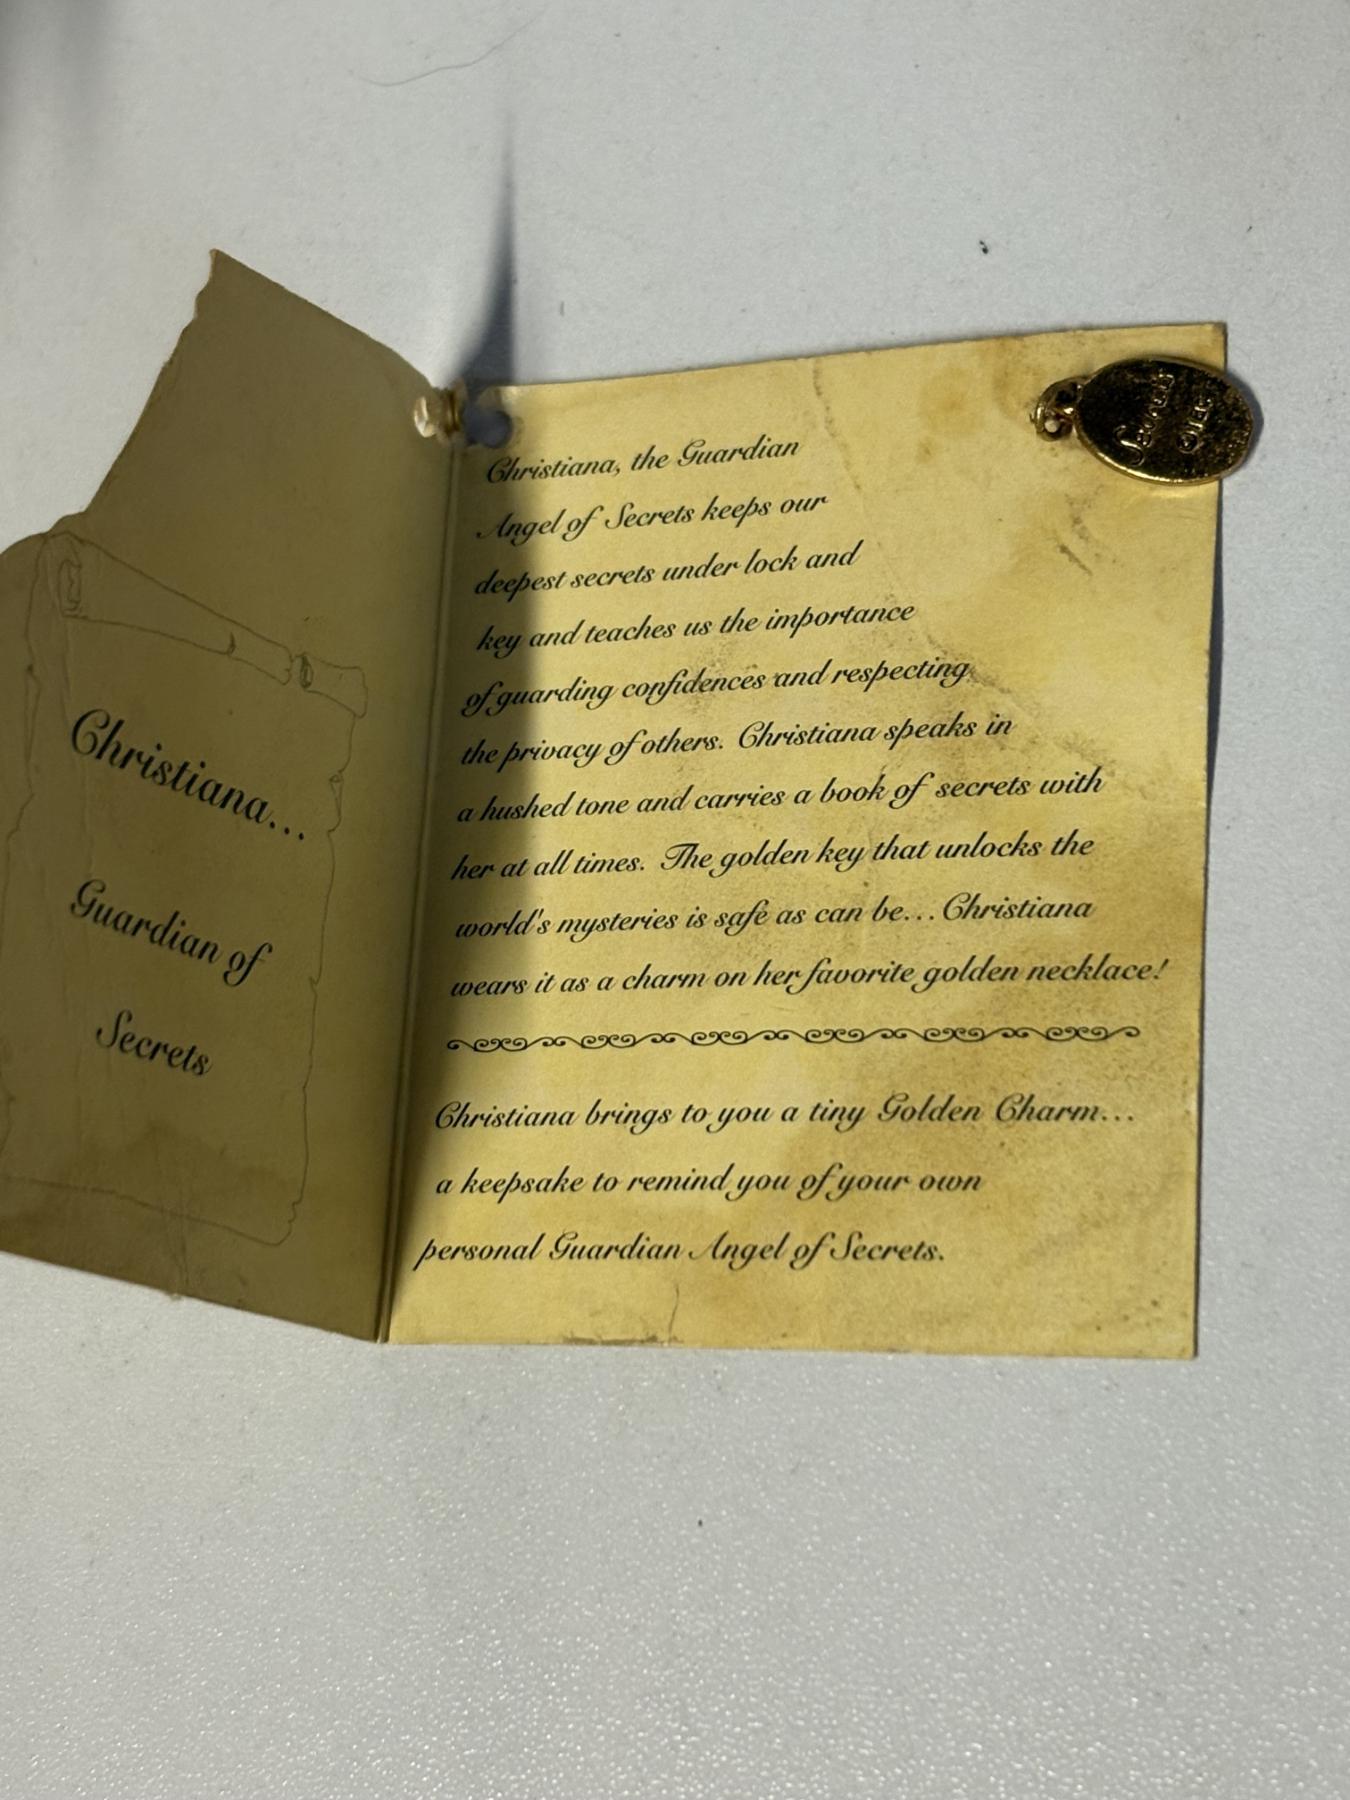 Christiana...
Guardian of
Secrets
Christiana, the Guardian
Angel of Secrets keeps our
deepest secrets under lock and
key and teaches us the importance
of guarding confidences and respecting
the privacy of others. Christiana speaks in
a hushed tone and carries a book of secrets with
her at all times. The golden key that unlocks the
world's mysteries is safe as can be... Christiana
wears it as a charm on her favorite golden necklace!
Christiana brings to you a tiny Golden Charm...
a keepsake to remind you of your own
personal Guardian Angel of Secrets.
Secrets